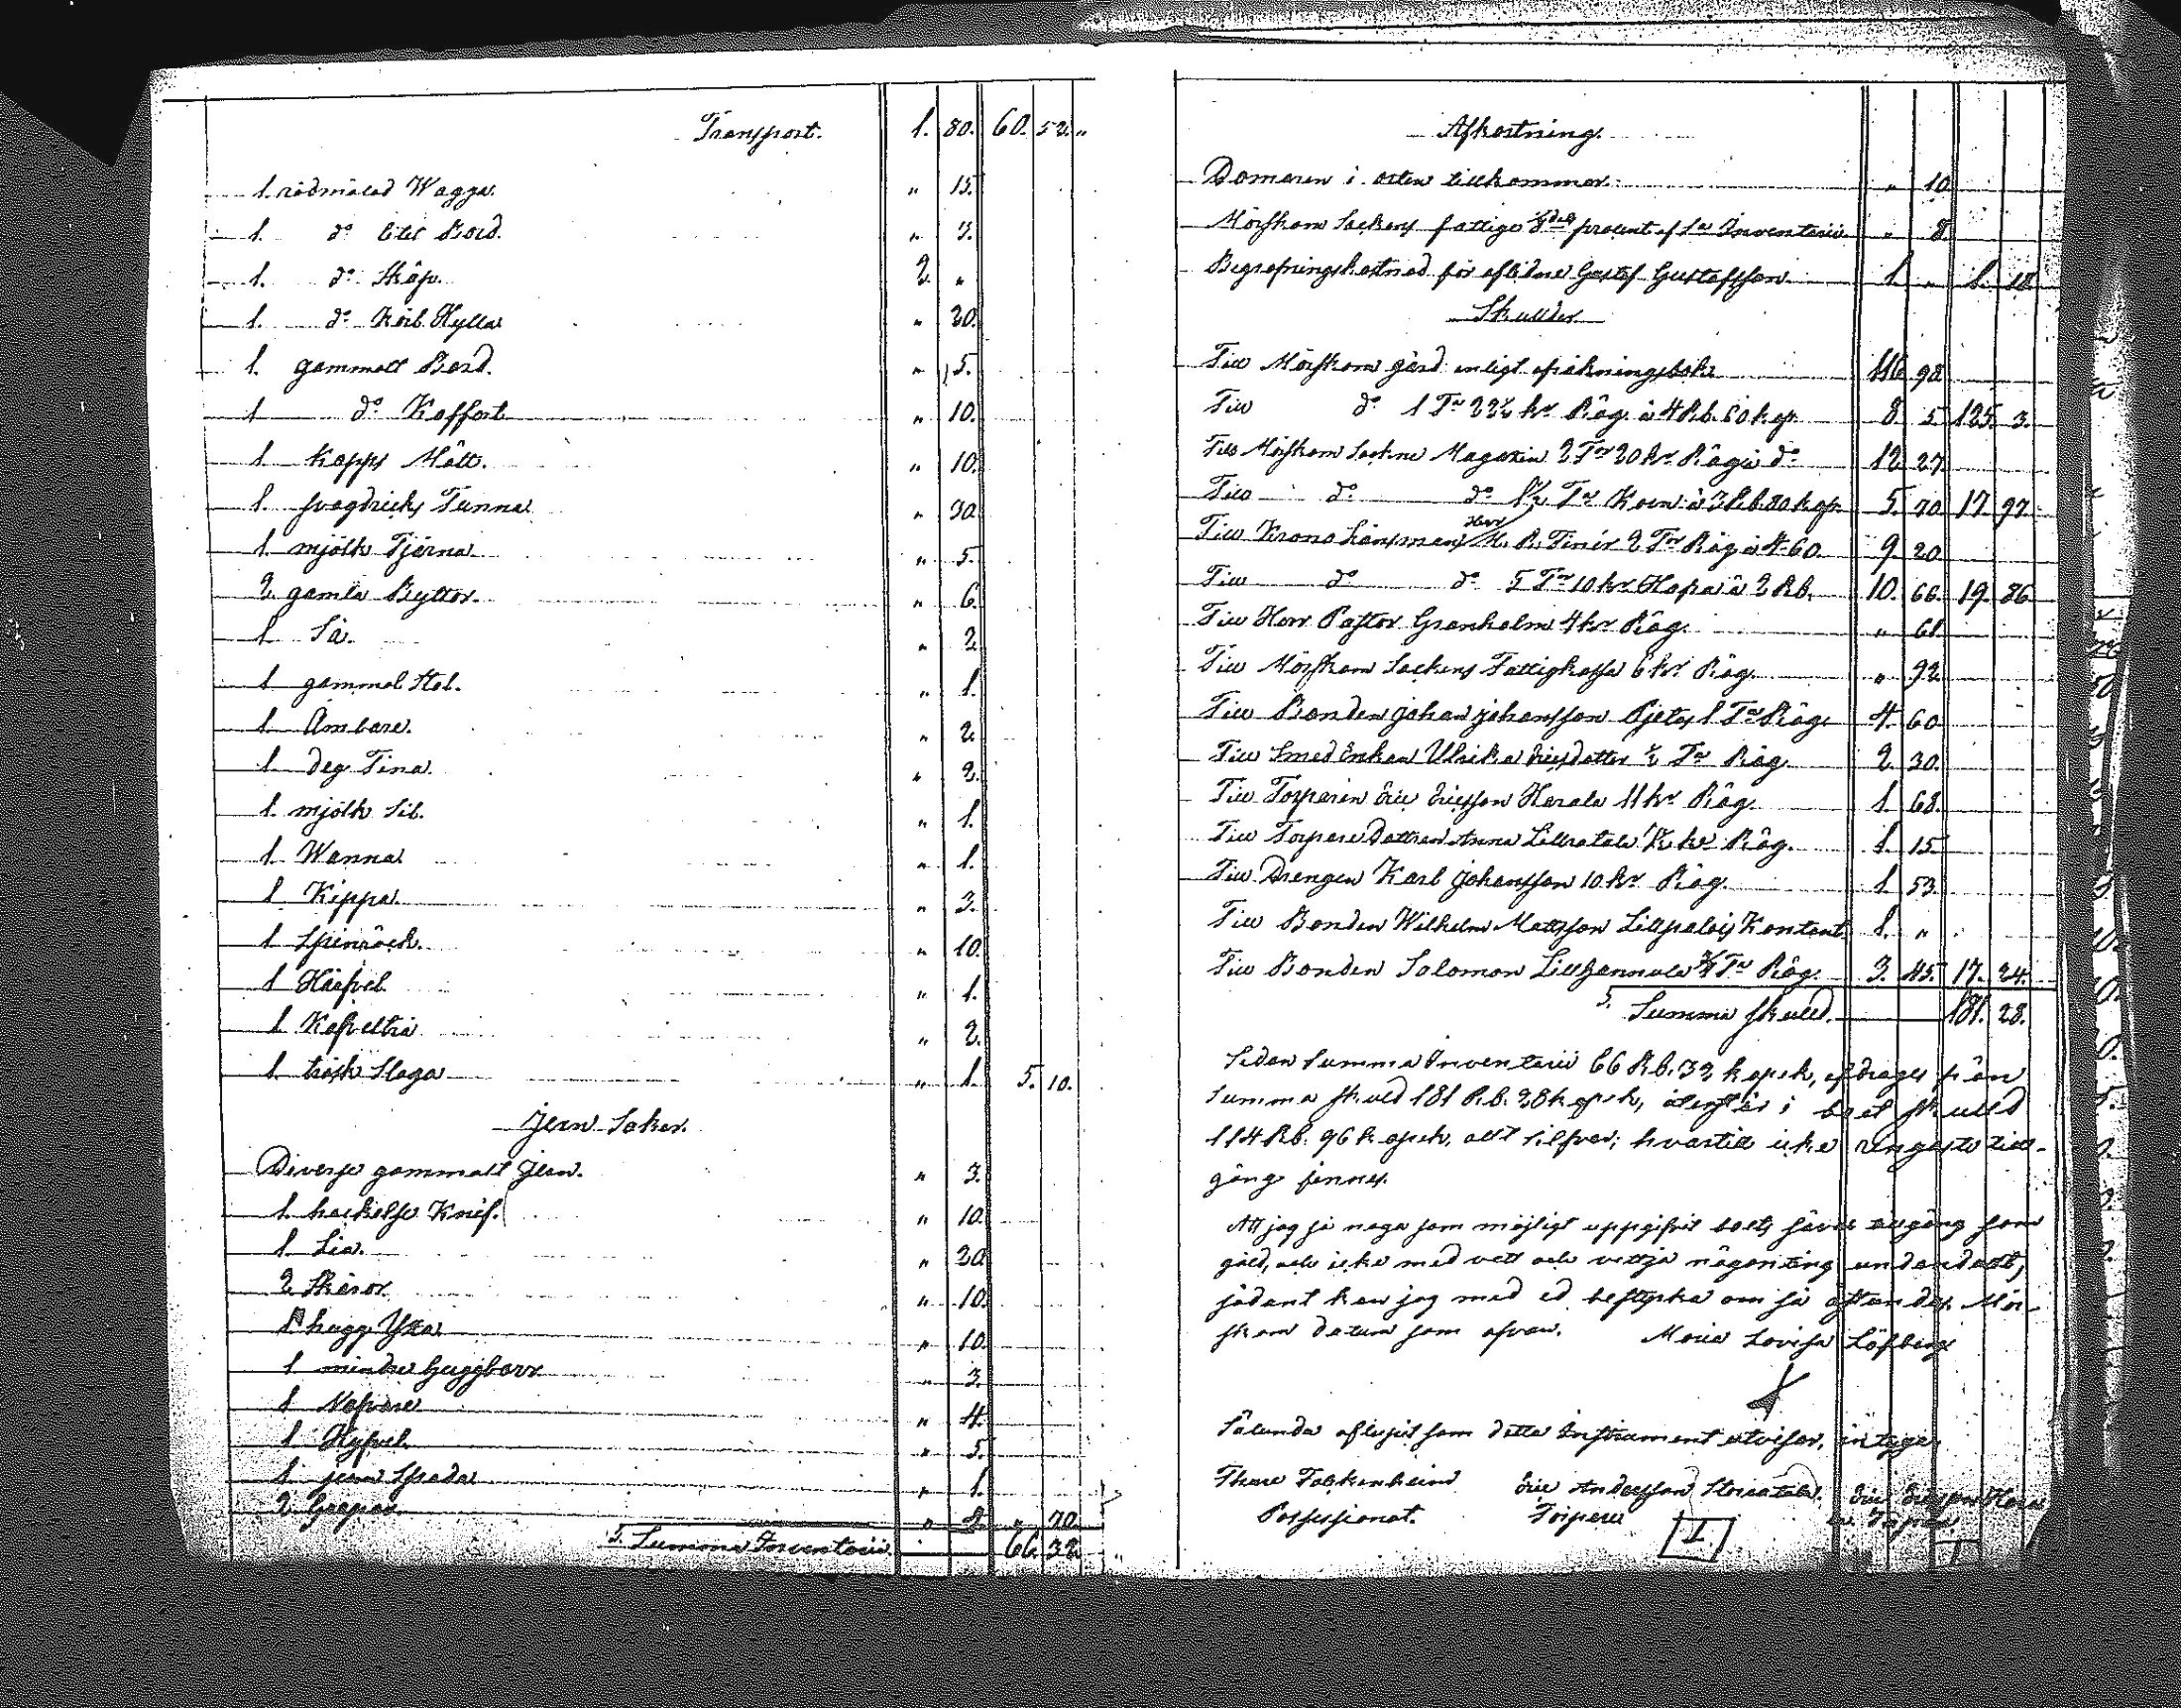 Transport. 1. 80. 60. 52. "
1 rödmålad Wagga " 15.
1. do litet Bord. " 3.
1. do Skåp. 2 "
1. do Hylla " 20.
1. gammalt Bord. " 5.
1 do Koffert " 10.
1 Kapps Mått. " 10.
1 svagdricks Tunna " 30
1 mjölk Tjerna " 5.
2 gamla Byttor. " 6.
1 Så. " 2
1 gammal Stol. " 1.
1 Ämbare. " 2
1 deg Tina. " 2.
1 mjölk Sil. " 1.
1 Wanna " 1.
1 Kippa " 3.
1 Spinråck. " 10.
1 Häfvel " 1.
1 " 2.
1 trösk Slaga " 1. 5. 10.
Jern Saker.
Diverse gammalt Jern. " 3.
1 hackelse Knif. " 10.
1 Lia. " 20
2 Skäror " 10.
1 hugg Yxa " 10.
1 mindre huggborr " 3.
1 Nafvare " 4.
1 Hyfvel " 5.
1 jern Spada " 1.
2 " 2 " 70.
S. Summa Inventarii 66. 32
Afkortning.
Domaren i orten tillkommer " 10
Mörskom Sockens fattige procent af Sa Inventarii " 8
Begrafningskostnad för aflidne Gustaf Gustafsson. 1. " 1. 18
Skulder
Till Mörskom gård enligt afräkningsbok 116 98
Till do 1 Tna 22½ kr Råg à 4 Rb. 60 kop. 8. 5 125. 3.
Till Mörskom Sockne Magazin 2 Tnr 20 kr Råg à do 12 27
Till do do 1½ Tnr Korn à 3 Rb. 80 kop. 5. 70 17 97
Till Krono Länsman Herr 2 Tnr Råg à 4-60 9 20
Till do do 5 Tnr 10 kr Hafra à 2 Rb. 10. 66. 19. 86
Till Herr Pastor Granholm 4 kr Råg. " 61
Till Mörskom Sockens Fattigkassa 6 kr Råg " 92
Till Bonden Johan Johansson Pjetes 1 Tna Råg 4. 60
Till Smed Enkan Ulrika Ericsdotter ½ Tna Råg 2 30.
Till Torparen Eric Ericsson Harala 11 kr Råg. 1. 68.
Till Torpare Dottren Anna kr Råg. 1. 15
Till Drengen Karl Johansson 10 kr Råg. 1 53.
Till Bonden Wilhelm Mattsson Kontant 1. "
Till Bonden Salomon Tna Råg. 3. 45. 17. 24.
S. Summa skuld. 181. 28.
Sedan Summa Inventarii 66 Rb. 32 kopek, afdrages från
Summa skuld 181 Rb. 28 kopek, återstår i boet skuld
114 Rb. 96 kopek, allt silfver; hvartill icke ringaste till-
gång finnes.
Att jag så noga som möjligt uppgifvit boets såväl tillgång som
gäld, och icke med vett och vettja någonting undandolt,
sådant kan jag med ed bestyrka om så äskandes. Mör-
skom datum som ofvan. Maria Lovisa Löfberg
Sålunda aflupit som detta Instrument utvisar, intyga
Thure Falkenheim Eric Andersson Eric Ericsson
Possessionat. Torpare Torpare
I.